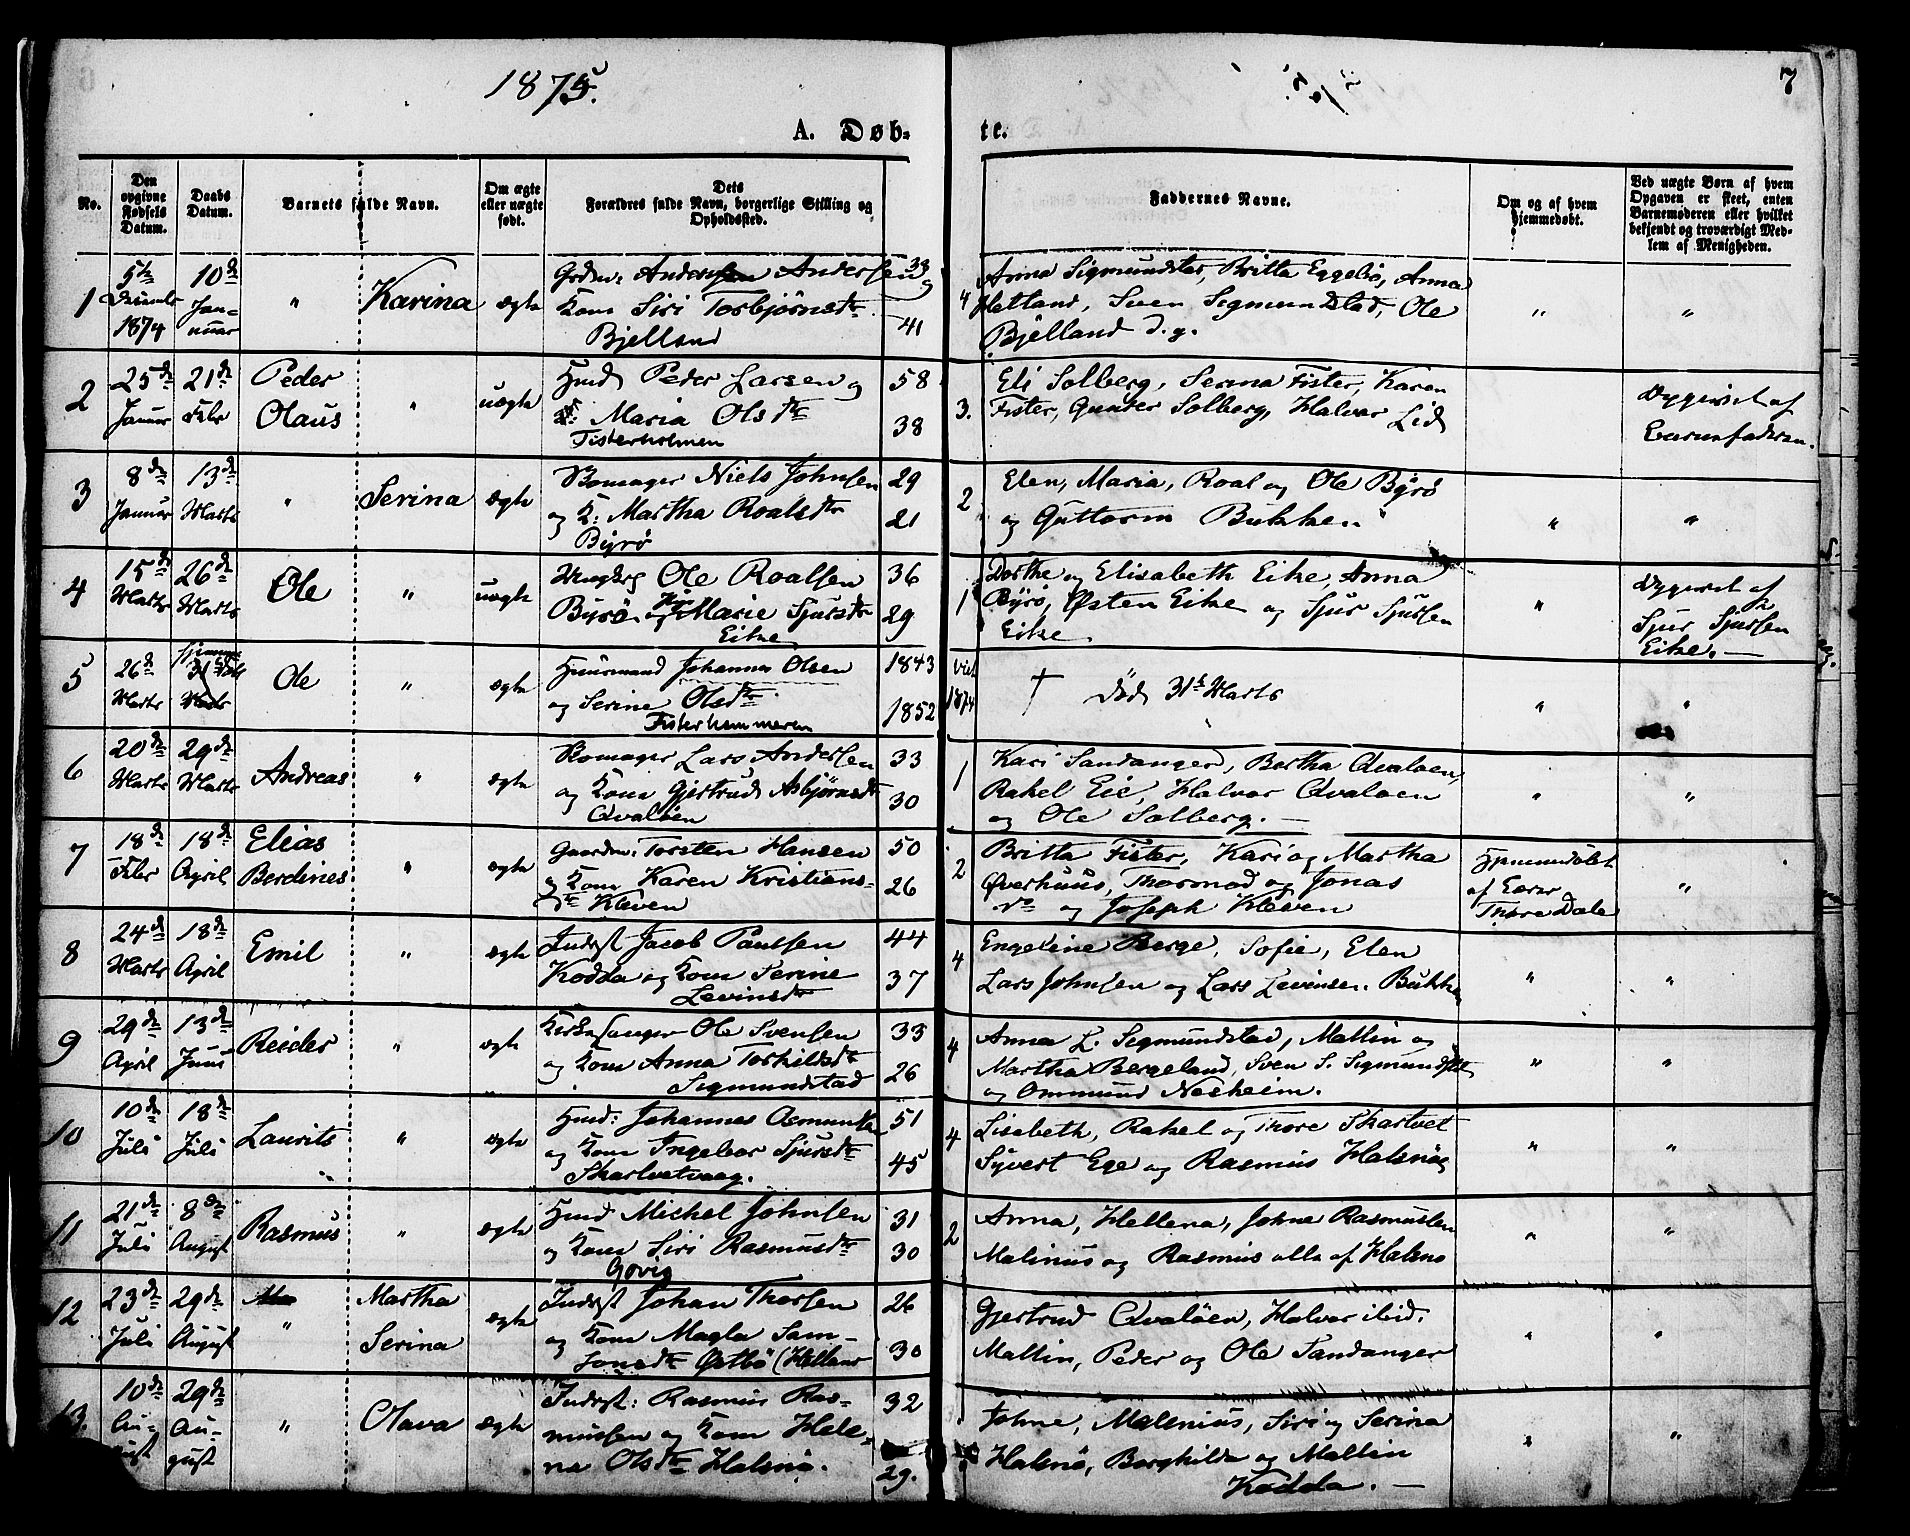 1875.
7
A. Døb-
te.
No.
Den opgivne Fødsels Datum.
Daabs Datum.
Barnets fulde Navn.
Om ægte eller uægte født.
Dets Forældres fulde Navn, borgerlige Stilling og Opholdssted.
Faddernes Navne.
Om og af hvem hjemmedøbt.
Ved uægte Børn af hvem
Opgaven er skeet, enten
Barnemoderen eller hvilket
bekjendt og troværdigt Med-
lem af Menigheden.
1
5te Decembr 1874
10de Januar
"
Karina
ægte
Grdm: Anders Andersen og
Kone Siri Torbjørnsdtr
Bjelland
33
41
4
Anna Sigmundstad, Britta Eggebø, Anna
Hetland, Sven Sigmundstad, Ole
Bjelland d.y.
"
"
2
25de Januar
21de Febr
Peder
Olaus
"
uægte
Hmd Peder Larsen og
Maria Olsdtr
Fisterholmen
58
38
3.
Eli Solberg, Serina Fister, Karen
Fister, Gunder Solberg, Halvor Lid
Opgivet af
Barnefaderen.
3
8de Januar
13de Marts
"
Serina
ægte
Bomager Niels Johnsen
og K: Martha Roalsdtr
Byrø
29
21
2
Elen, Maria, Roal og Ole Byrø
og Guttorm Bukken
"
"
4
15de Marts
26de Marts
Ole
"
uægte
Ungkrl Ole Roalsen
Byrø og Marie Sjursdtr
Eike
36
29
1
Dorthe og Elisabeth Eike, Anna
Byrø, Østen Eike og Sjur Sjursen
Eike
"
Opgivet af
Sjur Sjursen
Eike. —
5
26de Marts
31 Marts
Ole
"
ægte
Huusmand Johannes Olsen
og Serine Olsdtr
Fisterhammeren
1843
1852
viet
1874
† Død 31te Marts
"
"
6
20de Marts
29de Marts
Andreas
"
ægte
Bomager Lars Andersen
og Kone Gjertrud Asbjørnsdtr
Qvaløen
33
30
1
Kari Sandanger, Bertha Qvaløen,
Rakel Eie, Halvor Qvaløen
og Ole Solberg. —
"
"
7
18de Febr
18de April
Elias
Berdines
"
ægte
Gaardm: Torsten Hansen
og Kone Karen Kristians-
dtr Kleven
50
26
2
Britta Fister, Kari og Martha
Øverhuus, Thormod og Jonas
do og Joseph Kleven
Hjemmedøbt
af Lærer
Thore Dale
"
8
24de Marts
18de April
Emil
"
ægte
Inderst Jacob Paulsen
Kodda og Kone Serine
Levinsdtr
44
37
4
Engeline Berge, Sofie, Elen
Lars Johnsen og Lars Levinsen. Bukken
"
"
9
29de April
13de Juni
Reider
"
ægte
Kirkesanger Ole Svensen
og Kone Anna Torkildsdtr
Sigmundstad
33
26
4
Anna L. Sigmundstad, Mallin og
Martha Bergeland, Sven S. Sigmundstad
og Ommund Nesheim.
"
"
10
10de Juli
18de Juli
Laurits
"
ægte
Hmd: Johannes Osmundsen
og Kone Ingebor Sjursdtr
Skartvetvaag.
51
45
4
Lisabeth, Rakel og Thore Skartvet
Syvert Ege og Rasmus Halsnø
"
"
11
21de Juli
8de August
Rasmus
"
ægte
Hmd Michel Johnsen
og Kone Siri Rasmusdtr
Govig
31
30
2
Anna, Hellena, Johne Rasmussen
Malinus og Rasmus alle af Halsnø
"
"
12
23de Juli
29de August
"
Martha
Serina
ægte
Inderst Johan Thorsen
og Kone Magla Sam-
sonsdtr Østbø (Helland
26
30
Gjertrud Qvaløen, Halvor ibid.
Mallin, Peder og Ole Sandanger
"
"
13.
10de August
29de August
"
Olava
ægte
Inderst: Rasmus Ras-
mussen og Kone Hele-
ne Olsdtr Halsnø.
32
29.
Johne, Malenius, Siri og Serina
Halsnø, Borghilda og Mallin
Kodda. —
"
"